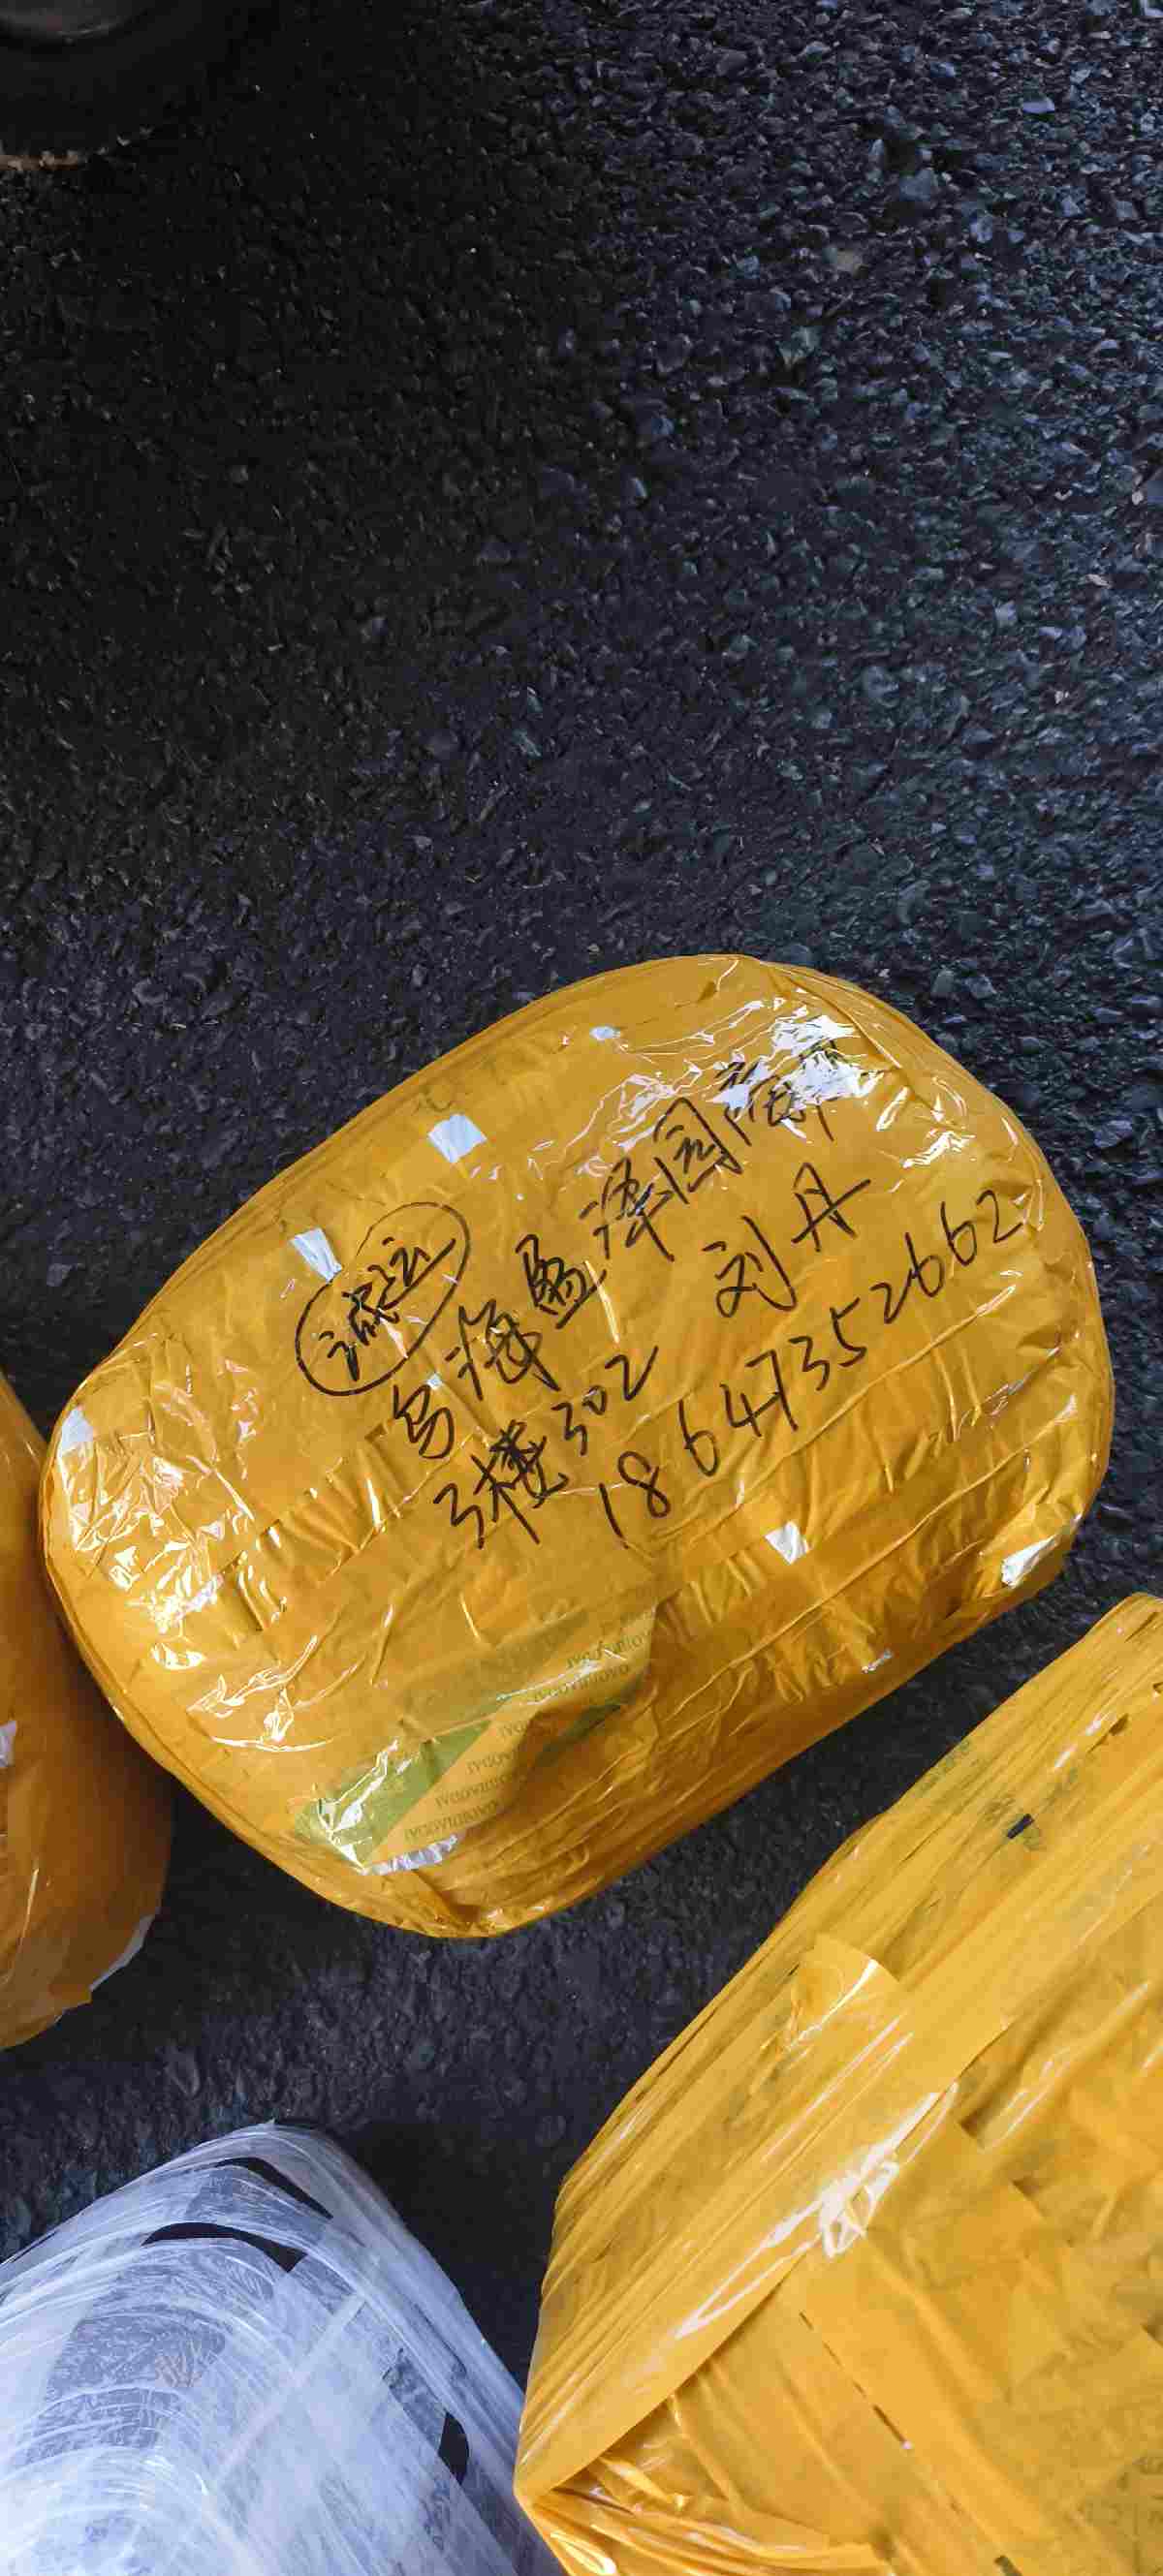 诚运
乌海盈泽园
3楼302 刘丹
18647352662